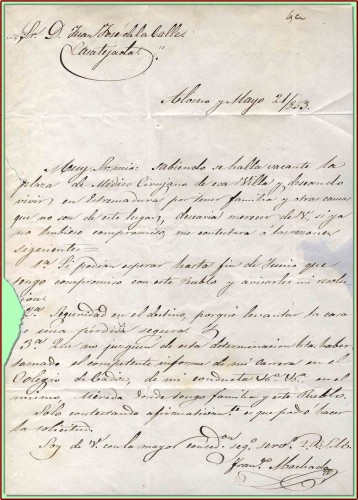 Sr. D. Juan José de la Calle
Casatejada.
Alorno y Mayo 21/853.
Muy Sr. mio: sabiendo se halla vacante la
plaza de Médico Cirujano de esa Villa y deseando
vivir, en Estremadura por tener familia y otras causas
que no son de este lugar, desearia merecer de V. si ya
no hubiese compromiso, me contestara á las razones
siguientes =
1ª Si podian esperar hasta fin de Junio que
tengo compromiso con este Pueblo y avisarles mi resolu
cion.
2ª Seguridad en el destino, porque levantar la casa
es una pérdida segura. Y
3ª Que no juzguen de esta determinacion sin haber
tomado el competente informe de mi carrera en el
Colegio de Cadiz, de mi conducta en el
mismo, donde tengo familia y este Pueblo.
Solo contestando afirmativamte. es que podré hacer
la solicitud.
Soy de V. con la mayor considon. segº. servor. Q.B.S.M.
Franco. Machado